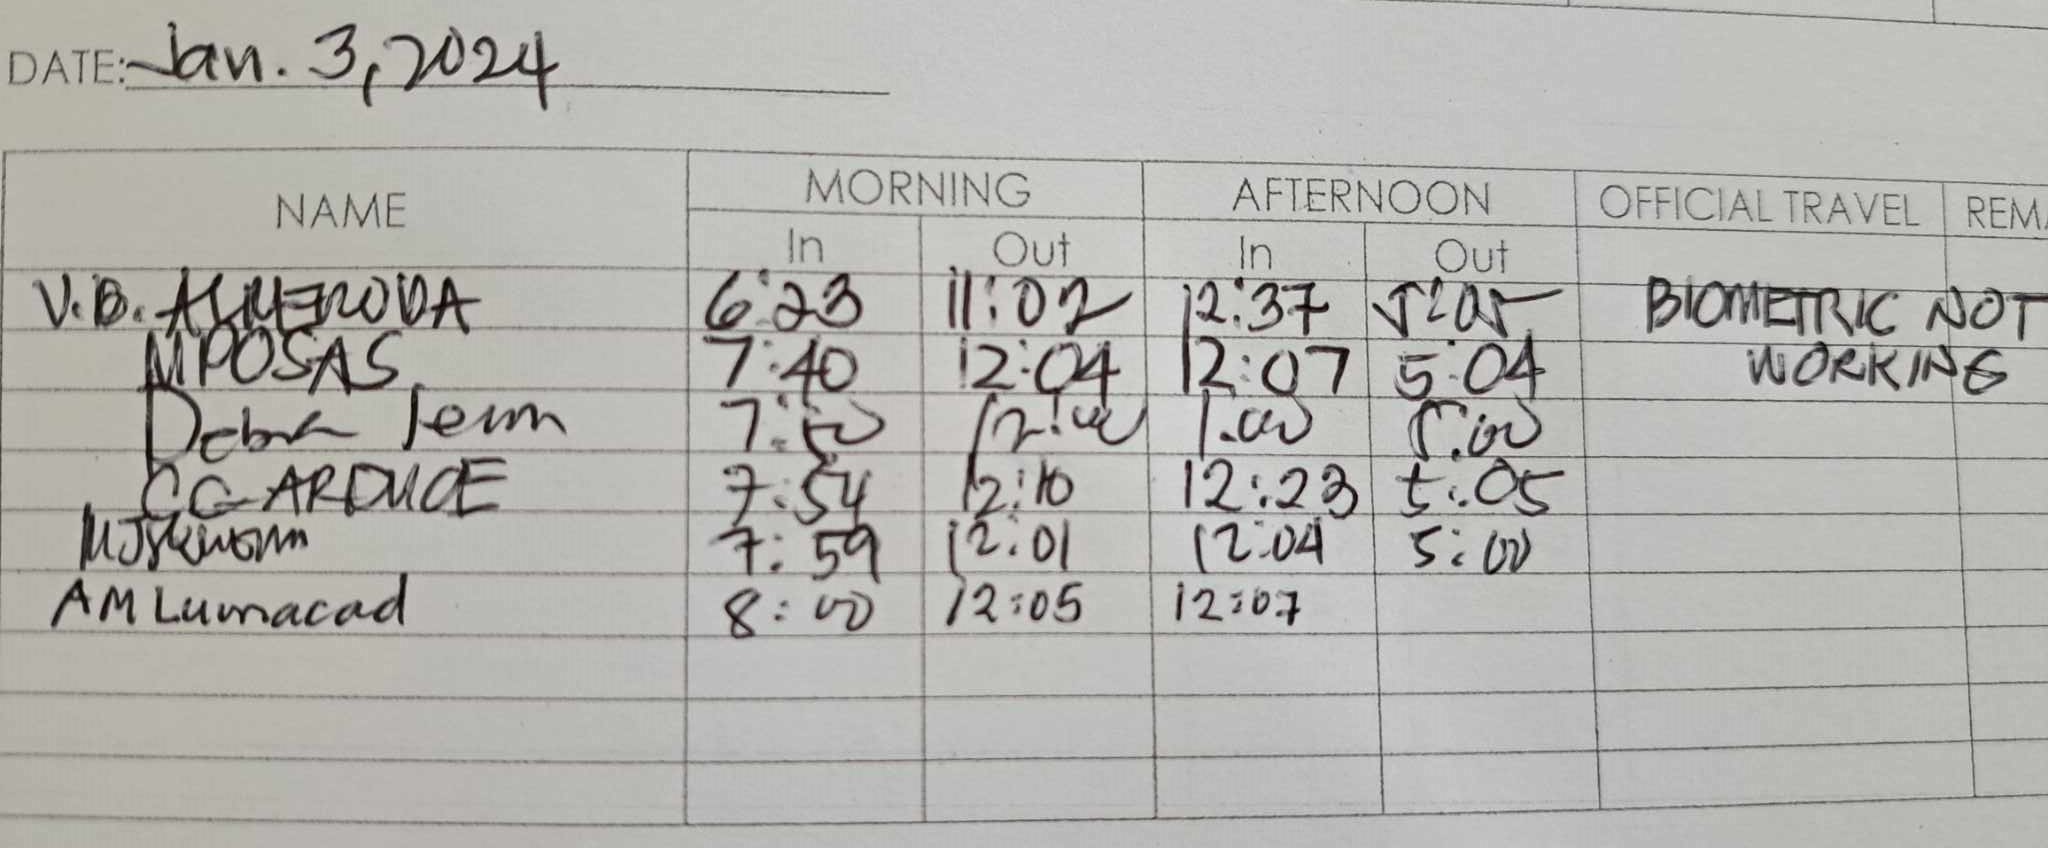 DATE: Jan. 3, 2024
NAME MORNING AFTERNOON OFFICIAL TRAVEL
In Out In Out
V.B. ALMERODA 6:23 11:02 12:37 5:05 BIOMETRIC NOT
MPOSAS 7:40 12:04 12:07 5:04 WORKING
7:50 12:00 1:00 5:00
CG ARDUCE 7:54 12:10 12:23 5:05
7:59 12:01 12:04 5:00
AM Lumacad 8:00 12:05 12:07